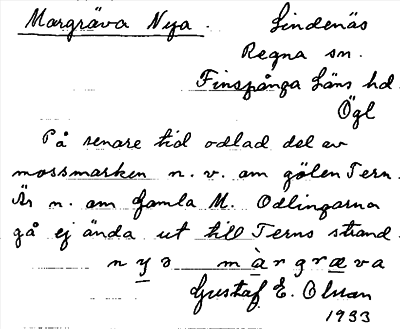 Margräva Nya. Lindenäs
Regna sn.
Finspånga läns hd.
Ögl
På senare tid odlad del av
mossmarken n. v. om gölen Tern.
Är n. om Gamla M. Odlingarna
gå ej ända ut till Terns strand.
nyɘ màrgræva
Gustaf E. Olsson
1933